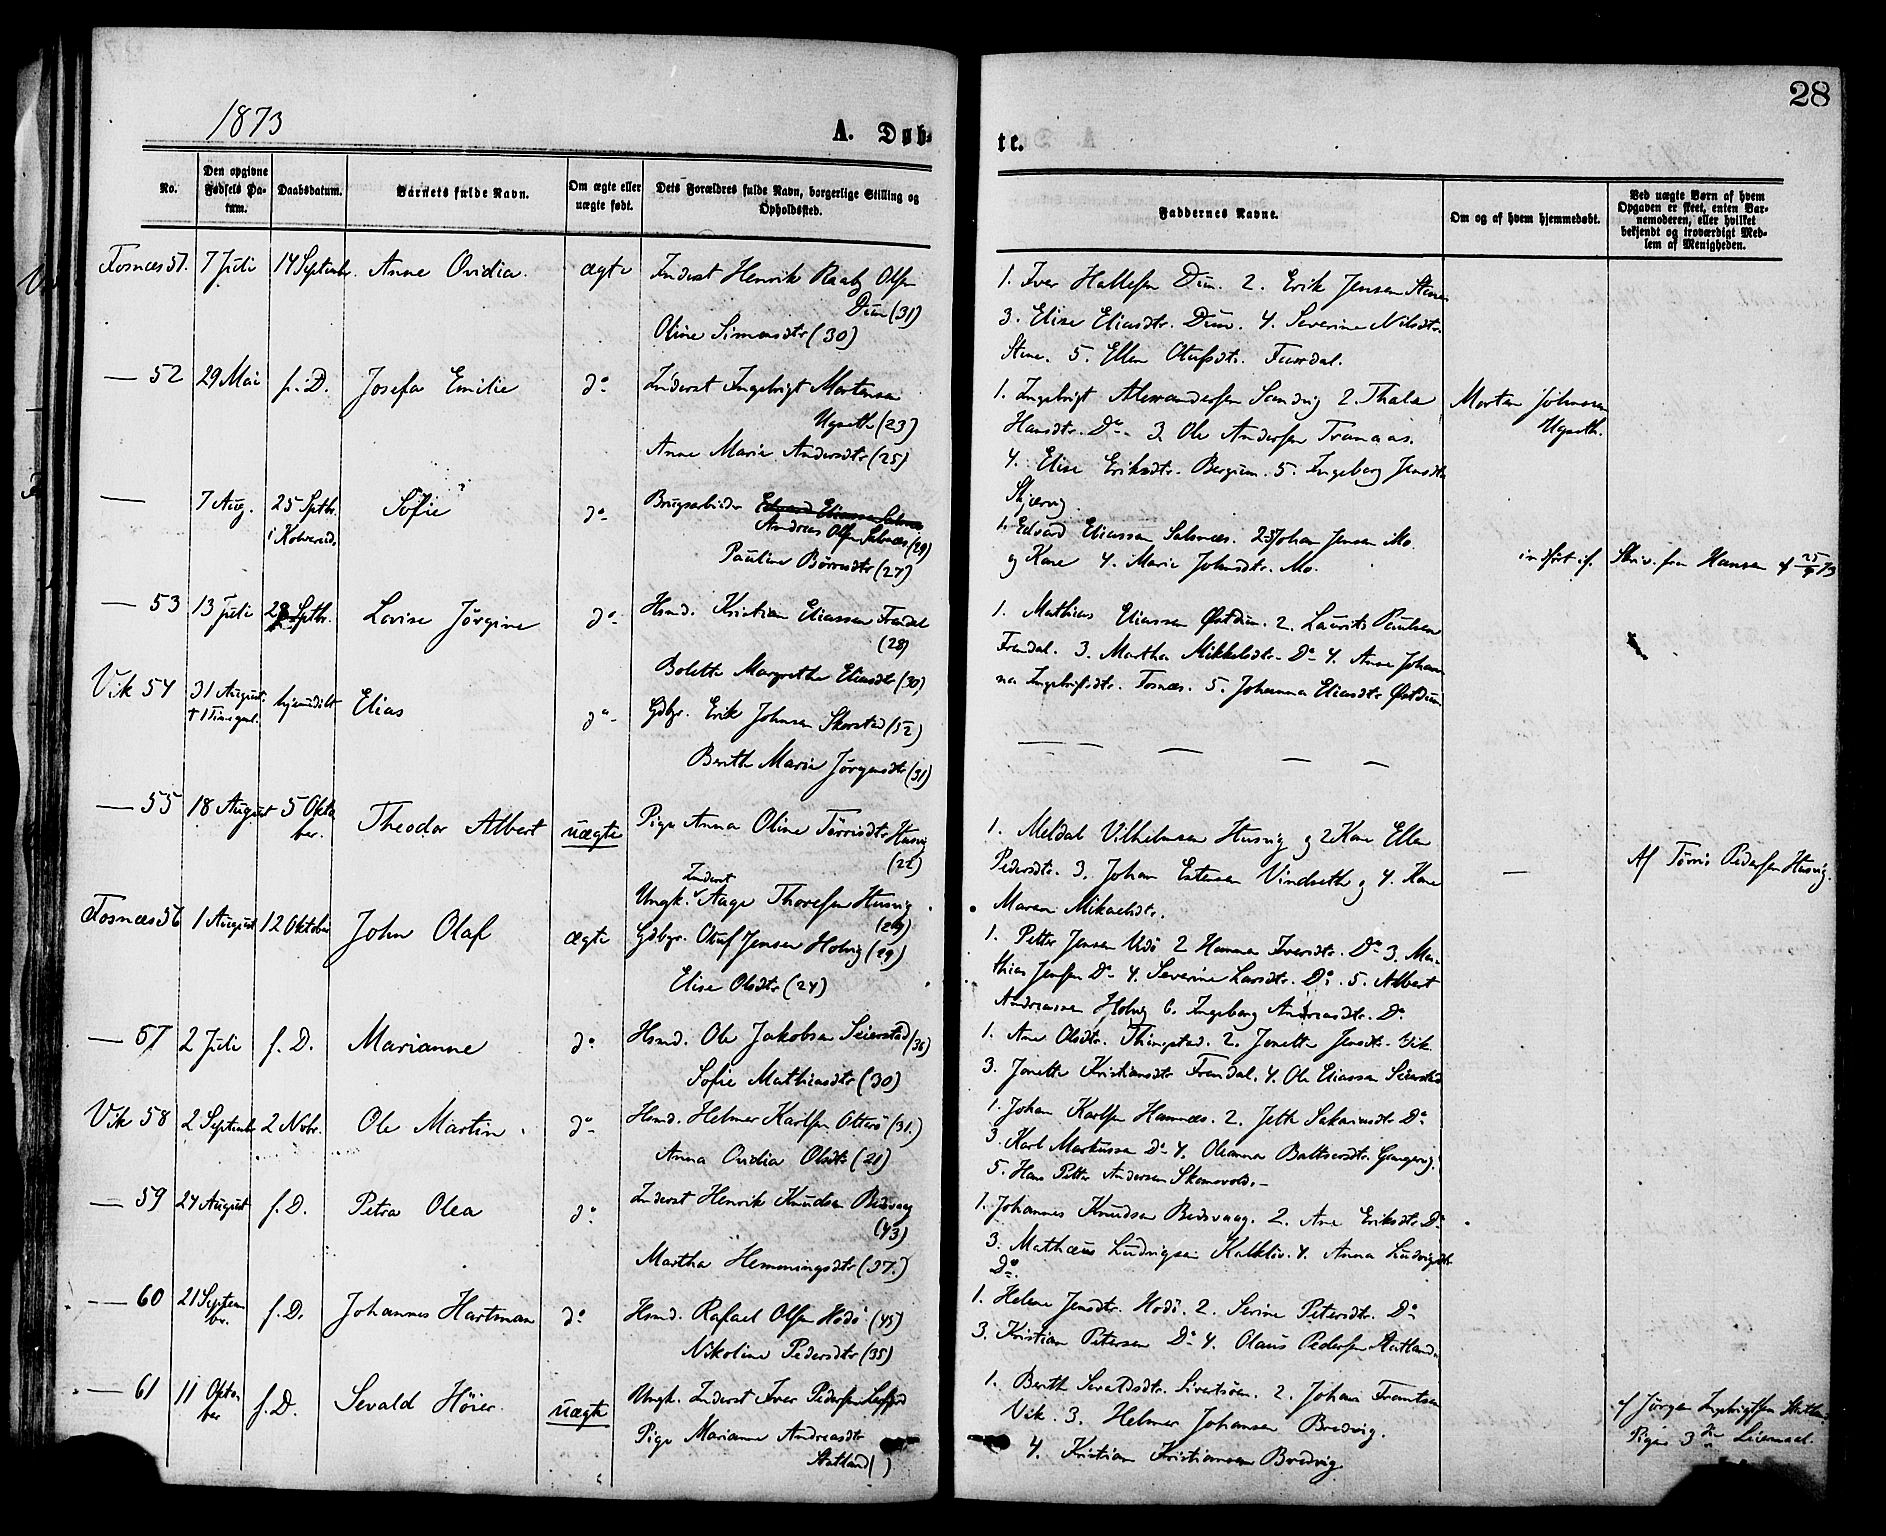 28
1873
A. Døb-
te.
No.
Den opgivne Fødsels Da-tum.
Daabsdatum.
Barnets fulde Navn.
Om ægte eller uægte født.
Dets Forældres fulde Navn, borgerlige Stilling og Opholdssted.
Faddernes Navne.
Om og af hvem hjemmedøbt.
Ved uægte Børn af hvem Opgaven er skeet, enten Bar-nemoderen, eller hvilket bekjendt og troværdigt Med-lem af Menigheden.
Fosnæs 51. 7 Juli 14 Septembr. Anne Ovidia. ægte Inderst Henrik Raaby Olsen
Duun (31)
Oline Simonsdtr (30)
1. Iver Hallesen Duun. 2. Erik Jensen Stene
3. Elise Eliasdtr. Duun. 4. Severine Nilsdtr.
Stene. 5. Ellen Olufsdtr. Faordal.
— 52 29 Mai f. D. Josefa Emilie do Inderst Ingebrigt Mortensen
Ugseth (23)
Anne Marie Andersdtr (25)
1. Ingebrigt Alexandersen Sandvig 2. Thala
Hansdtr. Do. 3. Ole Andersen Tranaas.
4. Elise Eriksdtr. Bergum. 5. Ingeborg Jensdtr
Skjærvig.
Morten Johnsen
Ugseth.
— 7 Aug. 25 Septbr. Sofie do
i Kolvereid.
Brugsarbeider Edvard Eliassen Salsnæs
Andreas Olsen Salsnæs (29)
Pauline Børresdtr (27)
1. Edvard Eliassen Salsnæs. 2-3 Johan Jensen Mo.
og Kone 4. Marie Johnsdtr. Mo.
indført if. Skriv. fra Hansen af 25/9 73
— 53 13 Juli 28 Septbr. Lovise Jørgine do Hsmd. Kristian Eliassen Faordal
(28)
Bolette Margrethe Eliasdtr (30)
1. Mathias Eliassen Østduun. 2. Laurits Paulsen
Faordal. 3. Martha Mikkelsdtr. Do 4. Anne Johan
na Ingebrigtsdtr. Fosnæs. 5. Johanna Eliasdtr Østduun
Vik 54 31 August. hjemmedøbt Elias do
† 1 Time gml.
Gdbgr. Erik Johnsen Skorstad (52)
Berith Marie Jørgensdtr (31)
— — — — —
— 55 18 August 5 Okto
ber. Theodor Albert uægte
Pige Anna Oline Tørrisdtr Husvig
(22)
Inderst
Ungk. Aage Thoresen Husvig
(29)
1. Meldal Vilhelmsen Husvig og 2 Kone Ellen
Pedersdtr. 3. Johan Estensen Vindseth og 4. Kone
Maren Mikaelsdtr.
— Af Tørris Pedersen Husvig.
Fosnæs 56 1 August 12 Oktober John Olaf ægte Gdbgr. Oluf Jensen Holvig (29)
Elise Olsdtr (24)
1. Petter Jensen Udø 2 Hanna Iversdtr. Do 3. Ma-
thias Jensen Do 4. Severine Larsdtr. Do. 5. Albert
Andreassen Holvig 6. Ingeborg Andreasdtr. Do
— 57 2 Juli f. D. Marianne do Hsmd. Ole Jakobsen Seierstad (36)
Sofie Mathiasdtr (30)
1. Ane Olsdtr. Thingstad. 2. Jonette Jensdtr. Vik.
3. Jonette Kristiansdtr Faordal. 4. Ole Eliassen Seierstad
Vik 58 2 September 2 Novbr. Ole Martin. do Hsmd. Helmer Karlsen Otterø (31.)
Anna Ovidia Olsdtr (21)
1. Johan Karlsen Hamnæs. 2. Jetta Sakariasdtr Do
3. Karl Markussen Do 4. Oleanna Baltsersdtr
5. Hans Petter Andersen
— 59 24 August f. D. Petra Olea do Inderst Henrik Knudsen Bedsvaag
(43)
Martha Hemmingsdtr (37.)
1. Johannes Knudsen Bedsvaag. 2. Ane Eriksdtr. Do
3. Mathæus Ludvigsen Kalkliv. 4. Anna Ludvigsdtr
Do.
— 60 21 Septem
br. f. D. Johannes Hartman do Hsmd. Rafael Olsen Hodø (45)
Nikoline Pedersdtr (35)
1. Helene Jensdtr. Hodø. 2. Serine Petersdtr. Do
3. Kristian Petersen Do 4. Olaus Pedersen Statland
— 61 11 Okto-
ber f. D. Sevald Høier. uægte Ungk. Inderst Iver Pedersen
Pige Marianne Andreasdtr
Statland ( )
1. Berith Sevaldsdtr. Sivertsøen. 2. Johan Frantsen
Vik. 3. Helmer Johansen Bredvig.
4. Kristian Kristiansen Bredvig
af Jørgen Ingebrigtsen Statland
Pigens 3die Leiermaal.